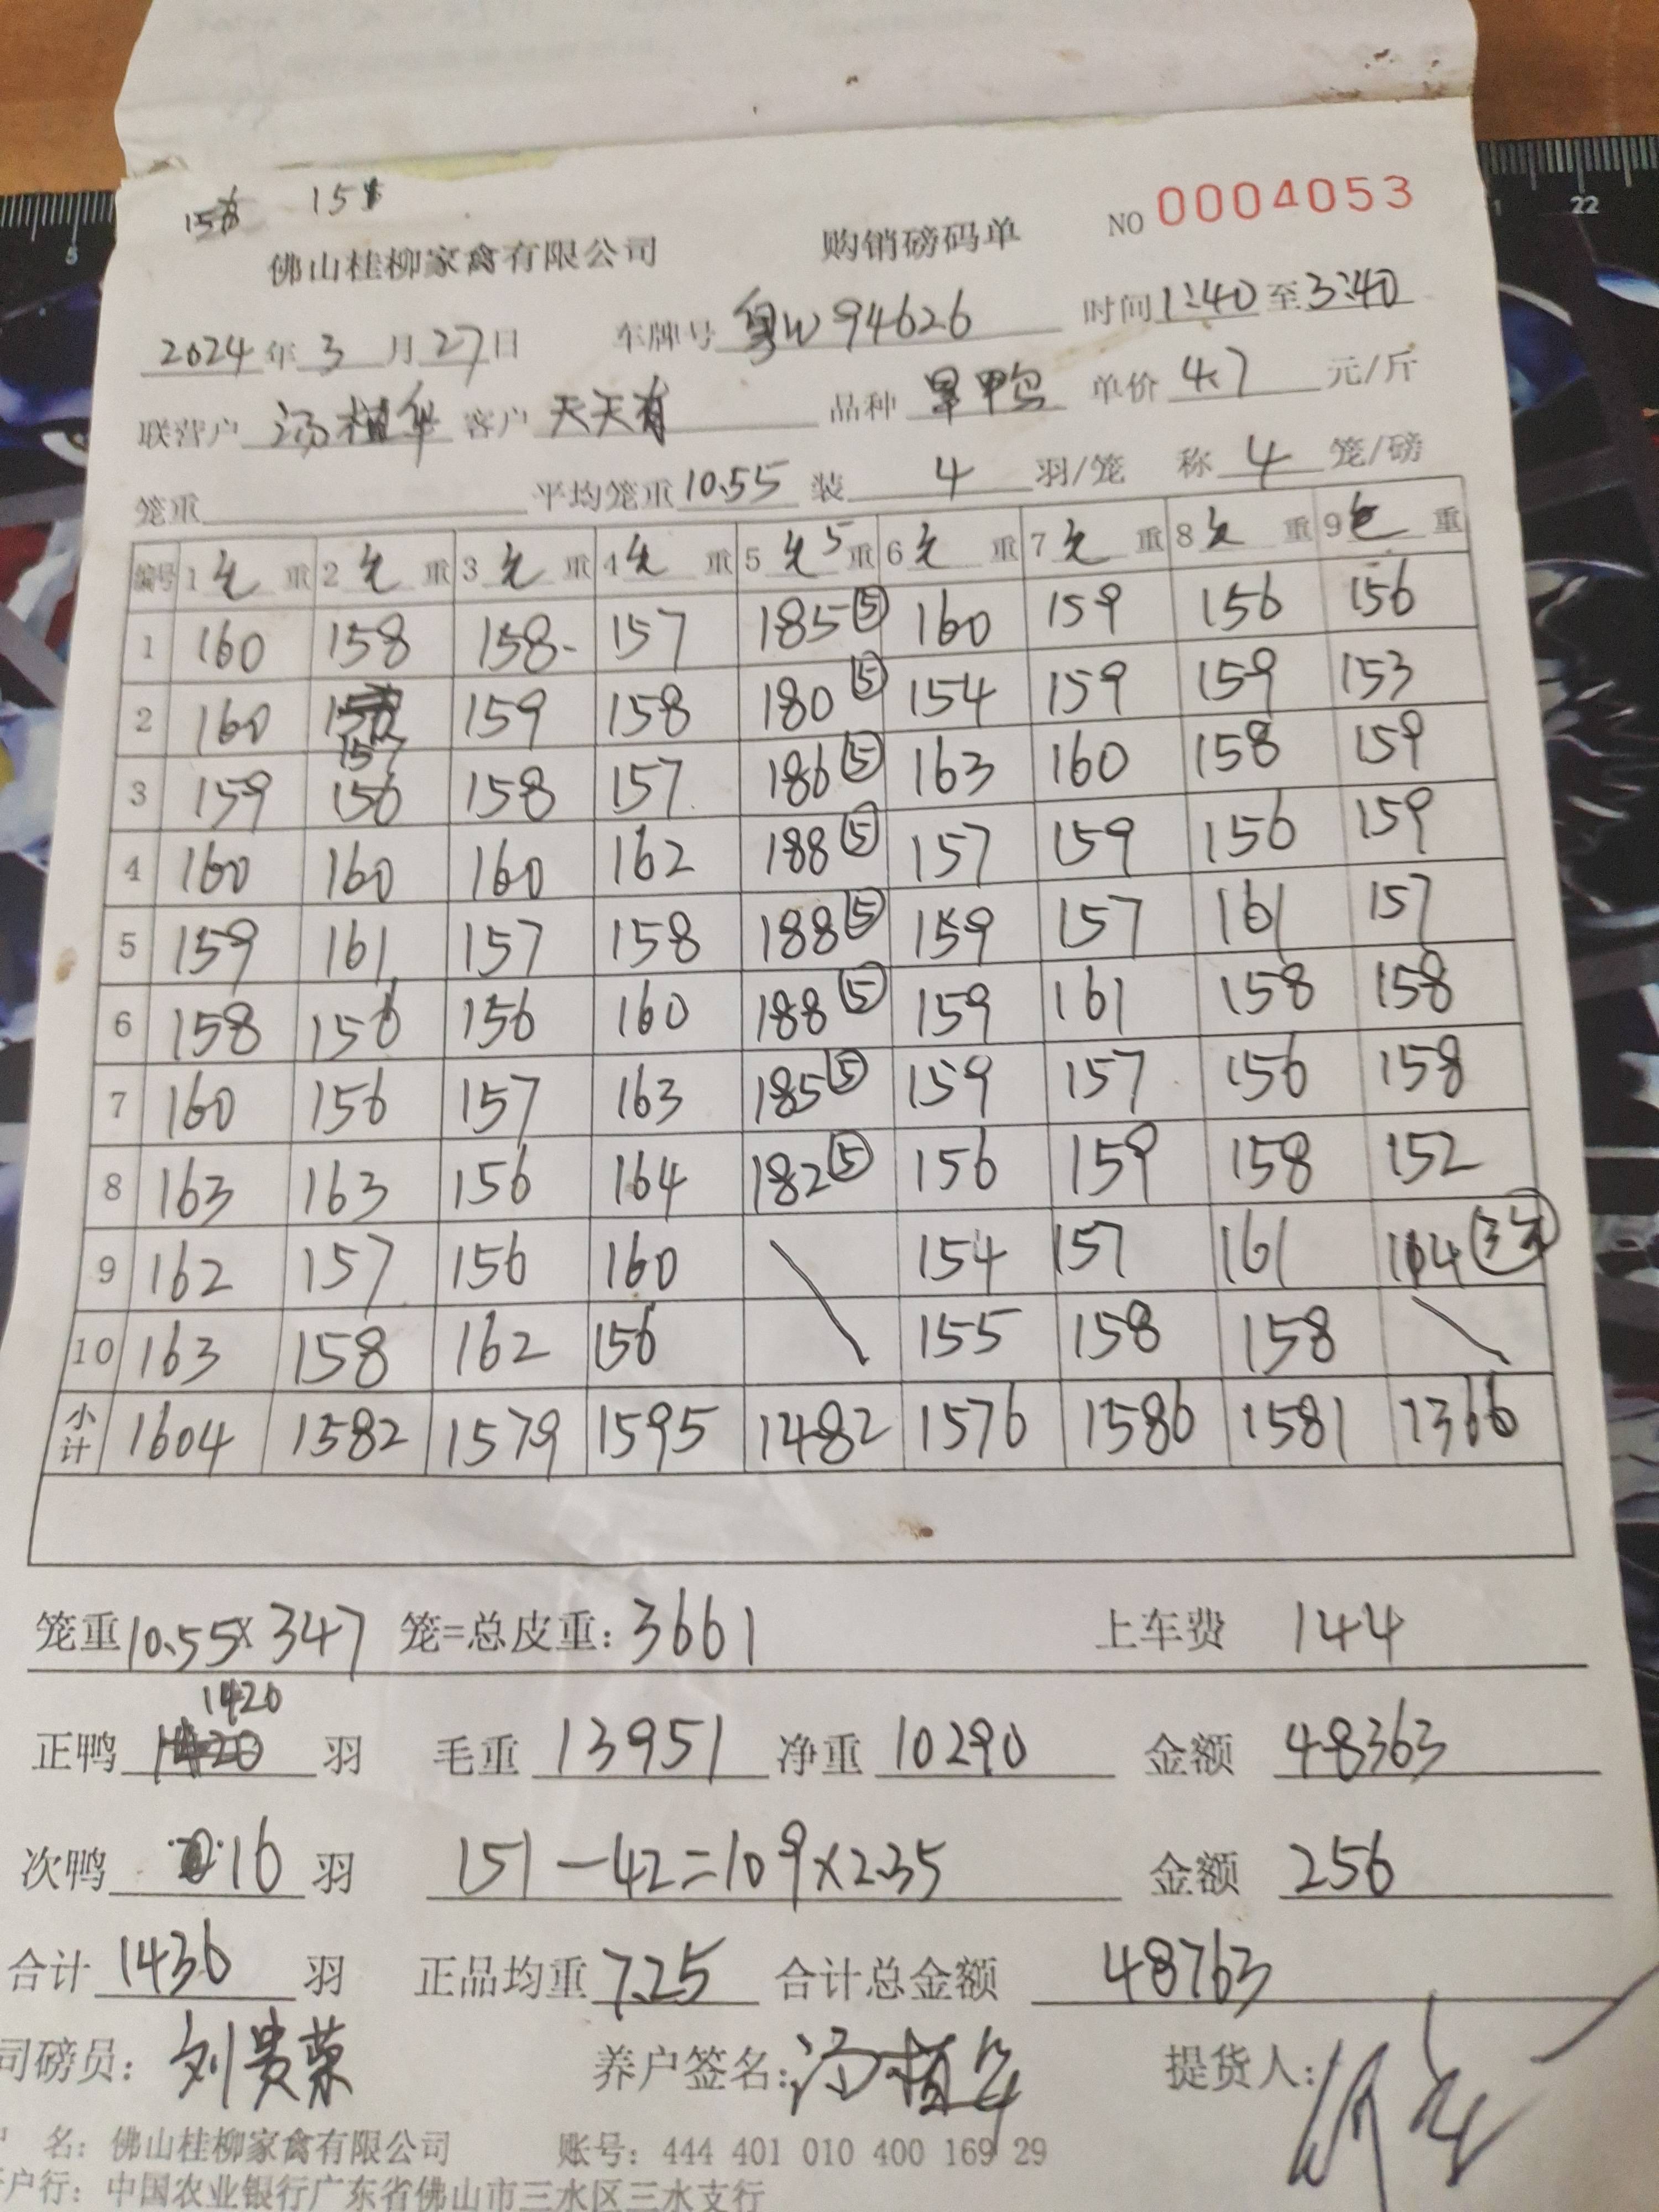 151
佛山桂柳家禽有限公司 购销磅码单 NO 0004053
2024年3月27日 车牌号 粤W94626 时间1:40至3:40
联营户 汤植华 客户 天天有 品种 旱鸭 单价 4.7 元/斤
笼重 平均笼重10.55 装 4 羽/笼 称 4 笼/磅
编号 1毛重 2毛重 3毛重 4毛重 5毛5重 6毛重 7毛重 8毛重 9毛重
1 160 158 158- 157 185⑤ 160 159 156 156
2 160 157 159 158 180⑤ 154 159 159 153
3 159 156 158 157 186⑤ 163 160 158 159
4 160 160 160 162 188⑤ 157 159 156 159
5 159 161 157 158 188⑤ 159 157 161 157
6 158 156 156 160 188⑤ 159 161 158 158
7 160 156 157 163 185⑤ 159 157 156 158
8 163 163 156 164 182⑤ 156 159 158 152
9 162 157 156 160 154 157 161 114
10 163 158 162 156 155 158 158
小计 1604 1582 1579 1595 1482 1576 1586 1581 1366
笼重10.55×347 笼=总皮重:3661 上车费 144
正鸭 1420 羽 毛重 13951 净重 10290 金额 48363
次鸭 16 羽 151-42=109×2.35 金额 256
合计 1436 羽 正品均重 7.25 合计总金额 48763
司磅员: 刘贵荣 养户签名: 汤植华 提货人:
名: 佛山桂柳家禽有限公司 账号: 444 401 010 400 169 29
户行: 中国农业银行广东省佛山市三水区三水支行